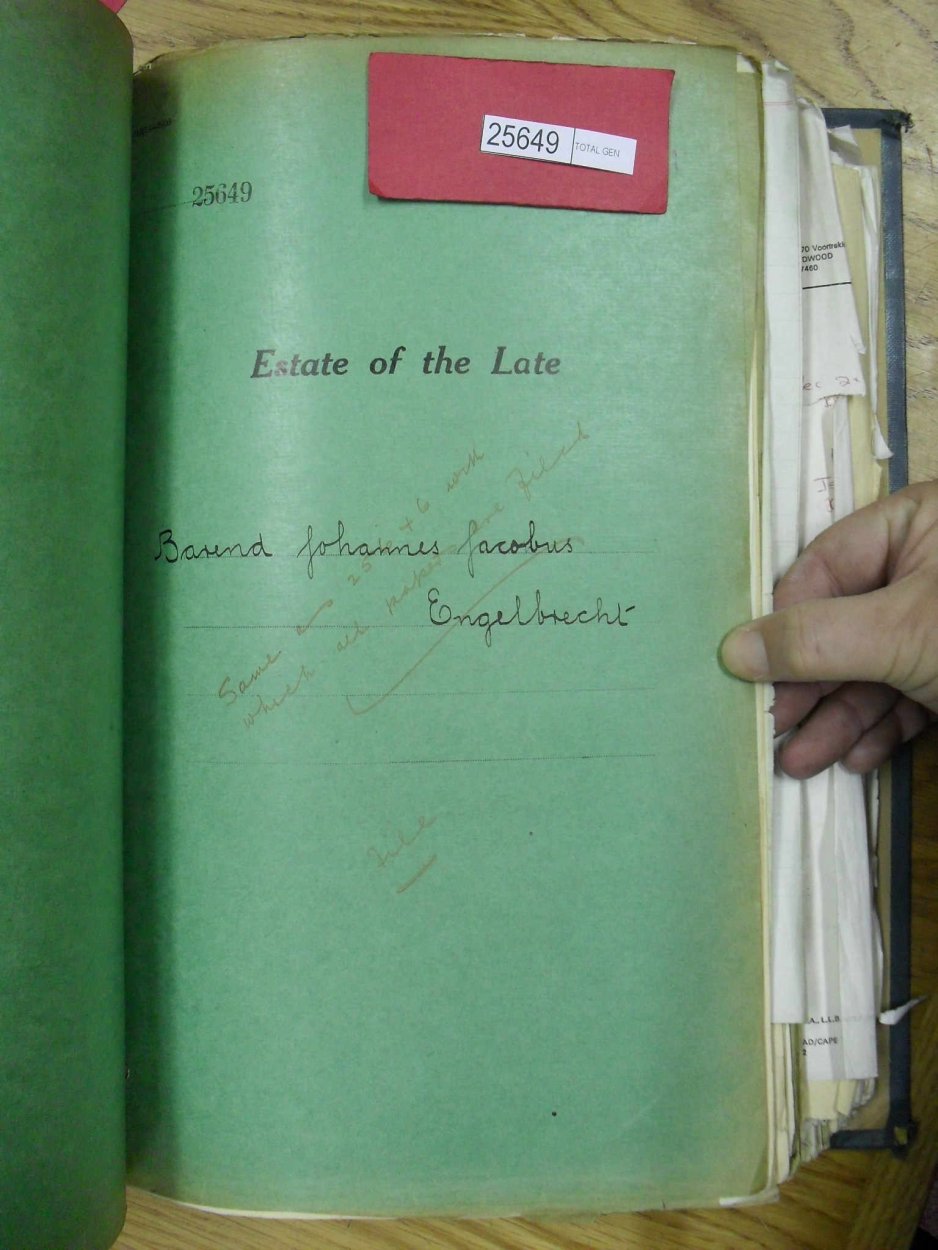 25649 TOTAL GEN
25649
70 Voortrekk
DWOOD
7460
Estate of the Late
ec 2
Same as 25 + 6 with
which all papers are filed
Barend Johannes Jacobus
Engelbrecht
File
A., LL.B.
AD/CAPE
2